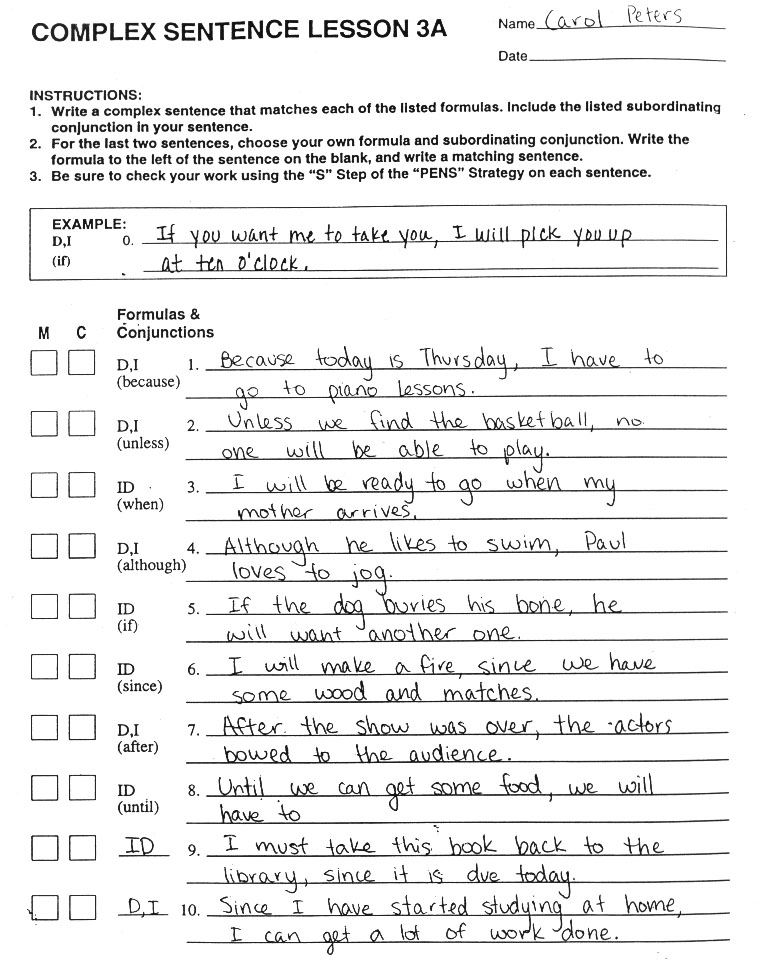 COMPLEX SENTENCE LESSON 3A
Name Carol Peters
Date
INSTRUCTIONS:
1. Write a complex sentence that matches each of the listed formulas. Include the listed subordinating
conjunction in your sentence.
2. For the last two sentences, choose your own formula and subordinating conjunction. Write the
formula to the left of the sentence on the blank, and write a matching sentence.
3. Be sure to check your work using the “S” Step of the “PENS” Strategy on each sentence.
EXAMPLE:
D,I 0. If you want me to take you, I will pick you up
(if) at ten o'clock.
Formulas &
M C Conjunctions
D,I 1. Because today is Thursday, I have to
(because) go to piano lessons.
D,I 2. Unless we find the basketball, no
(unless) one will be able to play.
ID 3. I will be ready to go when my
(when) mother arrives.
D,I 4. Although he likes to swim, Paul
(although) loves to jog.
ID 5. If the dog buries his bone, he
(if) will want another one.
ID 6. I will make a fire, since we have
(since) some wood and matches.
D,I 7. After the show was over, the actors
(after) bowed to the audience.
ID 8. Until we can get some food, we will
(until) have to
ID 9. I must take this book back to the
library, since it is due today.
D,I 10. Since I have started studying at home,
I can get a lot of work done.